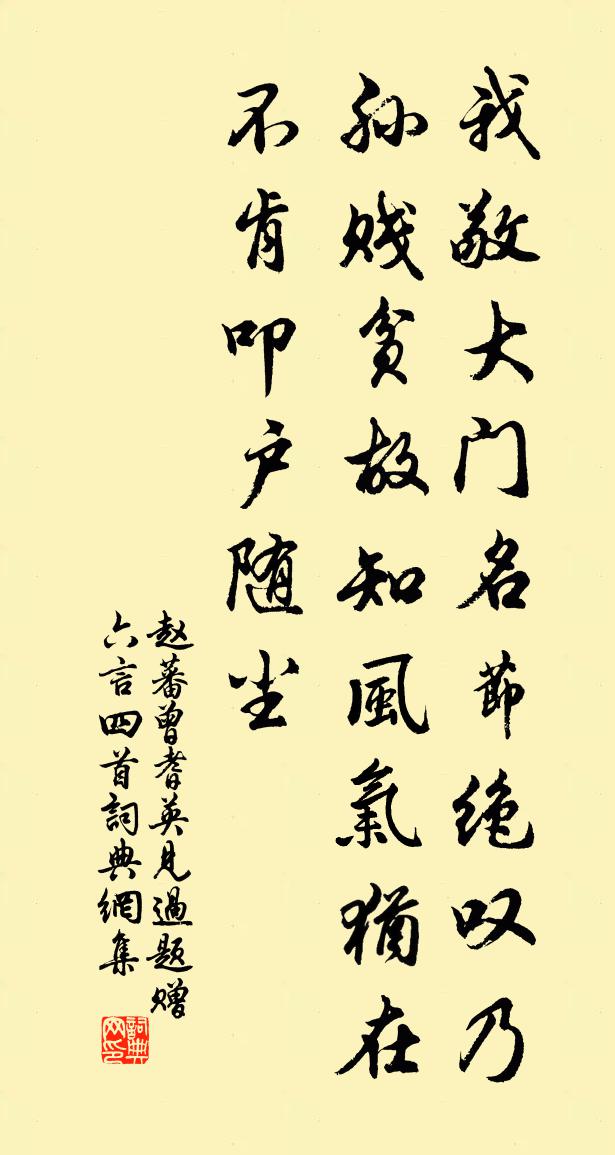 我敬大门名節绝叹乃
孙贱贫故知風氣犹在
不肯叩户随尘
赵蕃曾耆英見過题赠
六言四首詞典網集
詞典網印